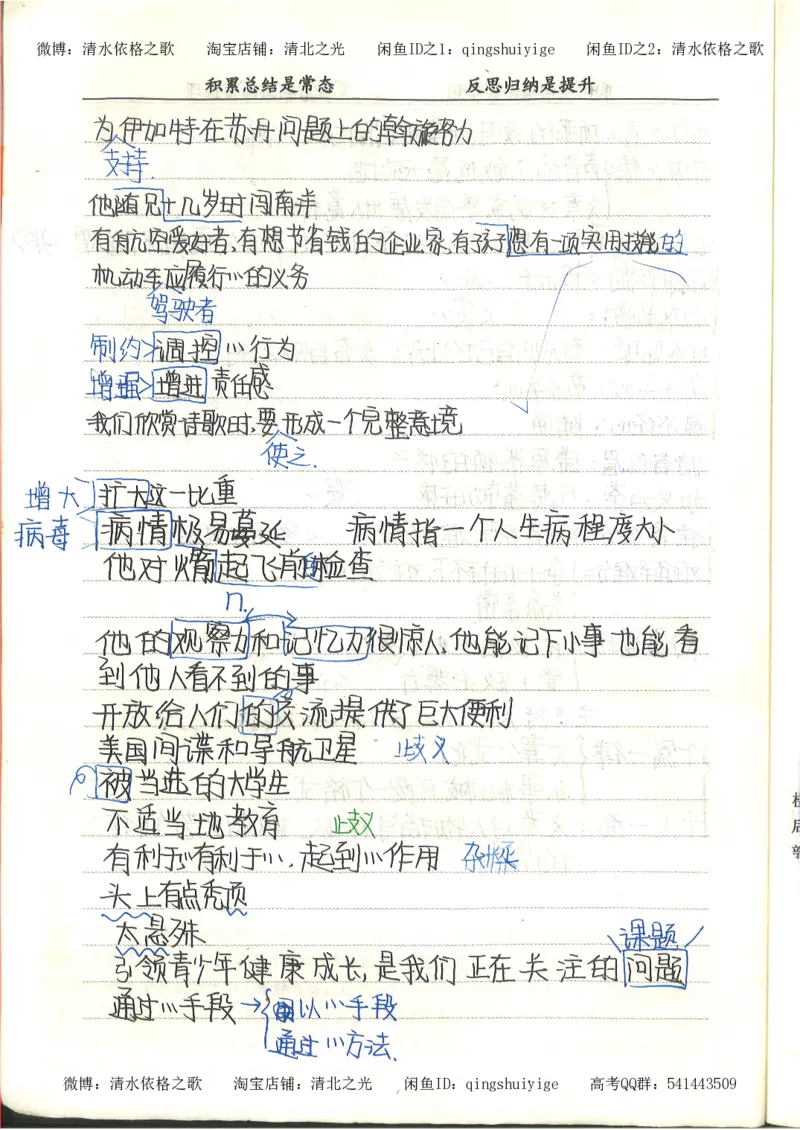 微博：清水依格之歌 淘宝店铺：清北之光 闲鱼ID之1：qingshuiyige 闲鱼ID之2：清水依格之歌
积累总结是常态 反思归纳是提升
为伊加特在苏丹问题上的斡旋努力
支持
他随兄十几岁时闯南洋
有航空爱好者、有想节省钱的企业家、有孩子想有一项实用技能的
机动车应履行…的义务
驾驶者
制约>调控…行为
增强>增进责任感
我们欣赏诗歌时,要形成一个完整意境
使之.
增大 扩大这一比重
病毒 病情极易蔓延 病情指一个人生病程度大小
他对火箭起飞前的检查
n.
他的观察力和记忆力很惊人,他能记下小事也能看
到他人看不到的事
开放给人们的交流提供了巨大便利
美国间谍和导航卫星 歧义
被当选的大学生
不适当地教育 歧义
有利于…有利于…,起到…作用 杂糅
头上有点秃顶
太悬殊
课题
引领青少年健康成长,是我们正在关注的问题
通过…手段→ 以…手段
通过…方法.
微博：清水依格之歌 淘宝店铺：清北之光 闲鱼ID：qingshuiyige 高考QQ群：541443509